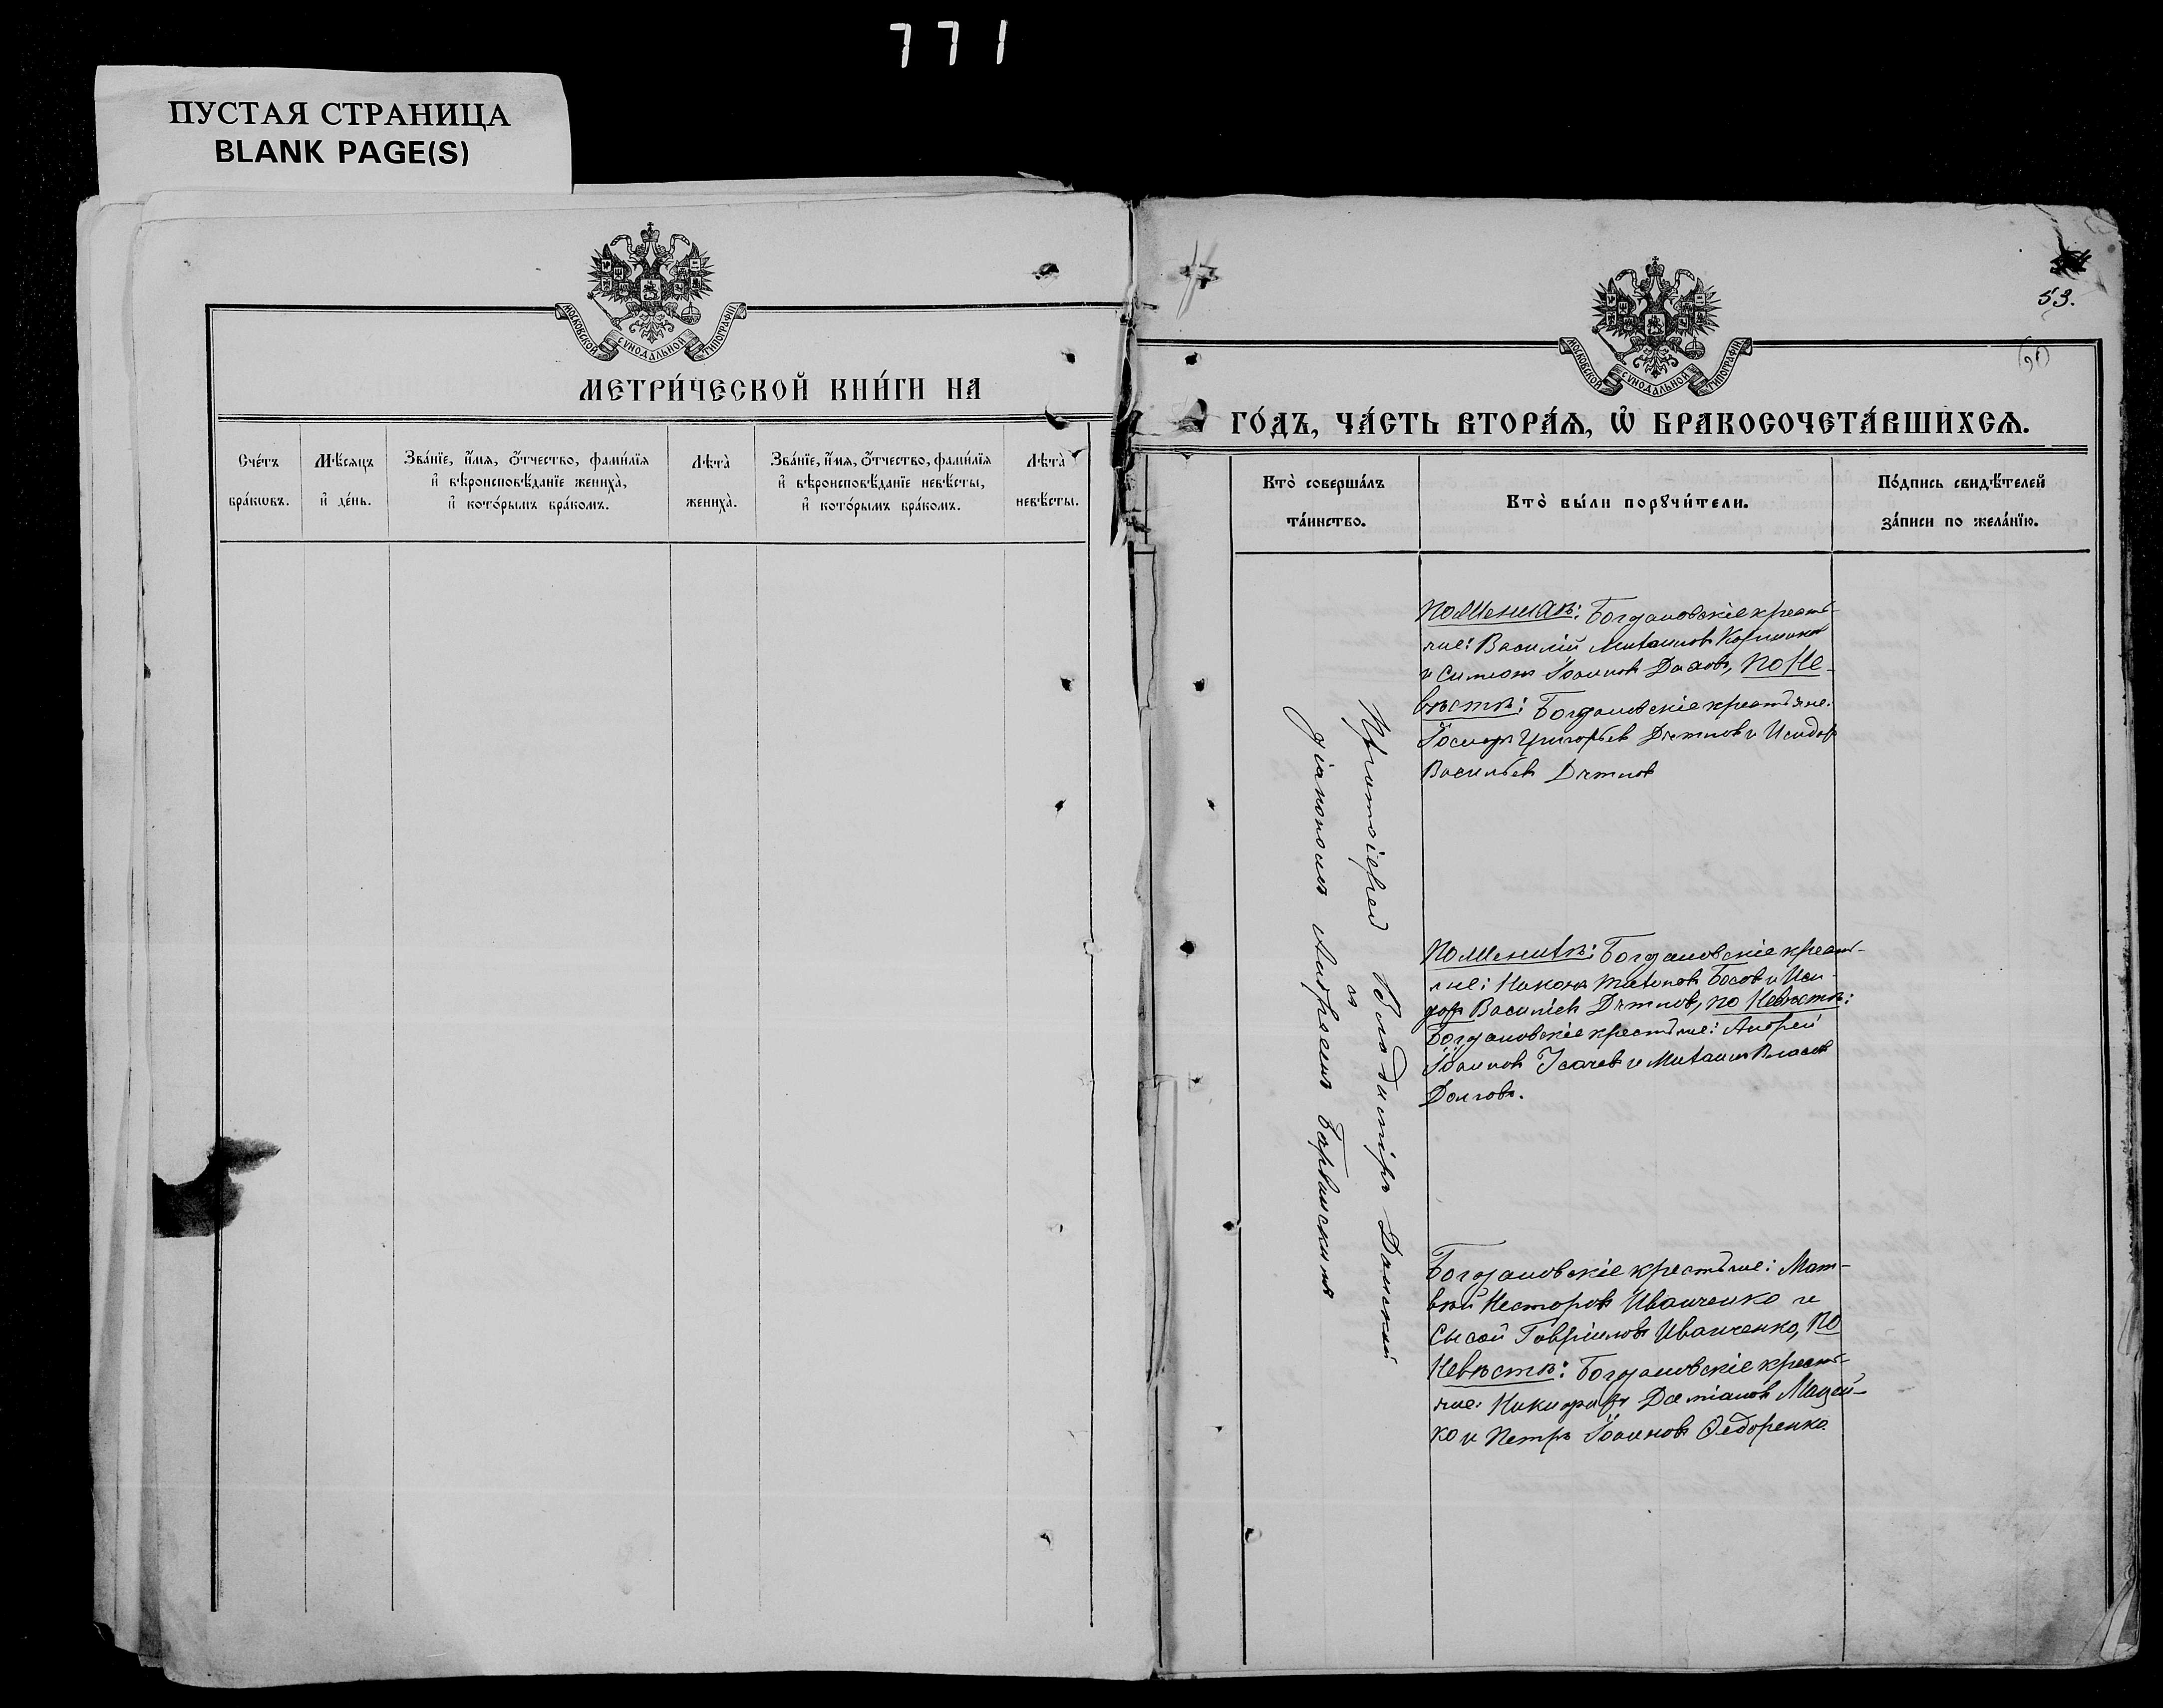 771
ПУСТАЯ СТРАНИЦА
BLANK PAGE(S)
МОСКОВСКОЙ СУНОДАЛЬНОЙ ТИПОГРАФІИ
МЕТРИ́ЧЕСКОЙ КНИ́ГИ НА
Сче́тъ
бра́кѡвъ.
Мѣ́сяцъ
и҆ де́нь.
Зва́нїе, и҆́мя, ѻ҆́тчество, фами́лїя
и҆ вѣроисповѣ́данїе жениха̀,
и҆ кото́рымъ бра́комъ.
Лѣта̀
жениха̀.
Зва́нїе, и҆́мя, ѻ҆́тчество, фами́лїя
и҆ вѣроисповѣ́данїе невѣ́сты,
и҆ кото́рымъ бра́комъ.
Лѣта̀
невѣ́сты.
53.
МОСКОВСКОЙ СУНОДАЛЬНОЙ ТИПОГРАФІИ
ГО́ДЪ, ЧА́СТЬ ВТОРА́Ѧ, Ѡ҆ БРАКОСОЧЕТА́ВШИХСѦ.
Кто̀ соверша́лъ
та́инство.
Кто̀ бы́ли порꙋчи́тели.
По́дпись свидѣ́телей
за́писи по жела́нїю.
Протоіерей Владиміръ Данскій
съ
діакономъ Андреемъ
По женихѣ: Богдановскіе крестья-
не: Василій Михаиловъ
и Симеонъ Іоанновъ По не-
вѣстѣ: Богдановскіе крестьяне:
Іосифъ Григорьев и Исидор
Васильевъ
По женихѣ: Богдановскіе крестья-
не: Никонъ Басовъ и Иси-
дор Васильев по невѣстѣ:
Богдановскіе крестьяне: Андрей
Іоанновъ Исачевъ и Михаил Власов
Долговъ.
Богдановскіе крестьяне: Мат-
вѣй Несторовъ Иванченко и
Сысой Гавріиловъ Иванченко, По
невѣстѣ: Богдановскіе крестья-
не: Никифоръ Даміановъ Мацей-
ко и Петръ Іоанновъ Ѳедоренко.